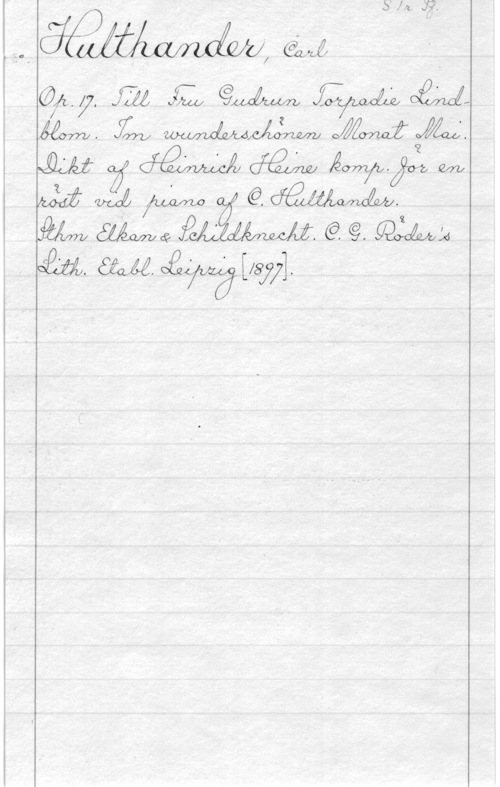 S 1r Pf.
Hulthander, Carl
Op. 17. Till Fru Gudrun Torpadie Lind-
blom. Im wunderschönen Monat Mai.
Dikt af Heinrich Heine komp. för en
röst vid piano af C. Hulthander.
Sthm Elkan & Schildknecht. C. G. Röder's
Lith. Etabl. Leipzig [1897].